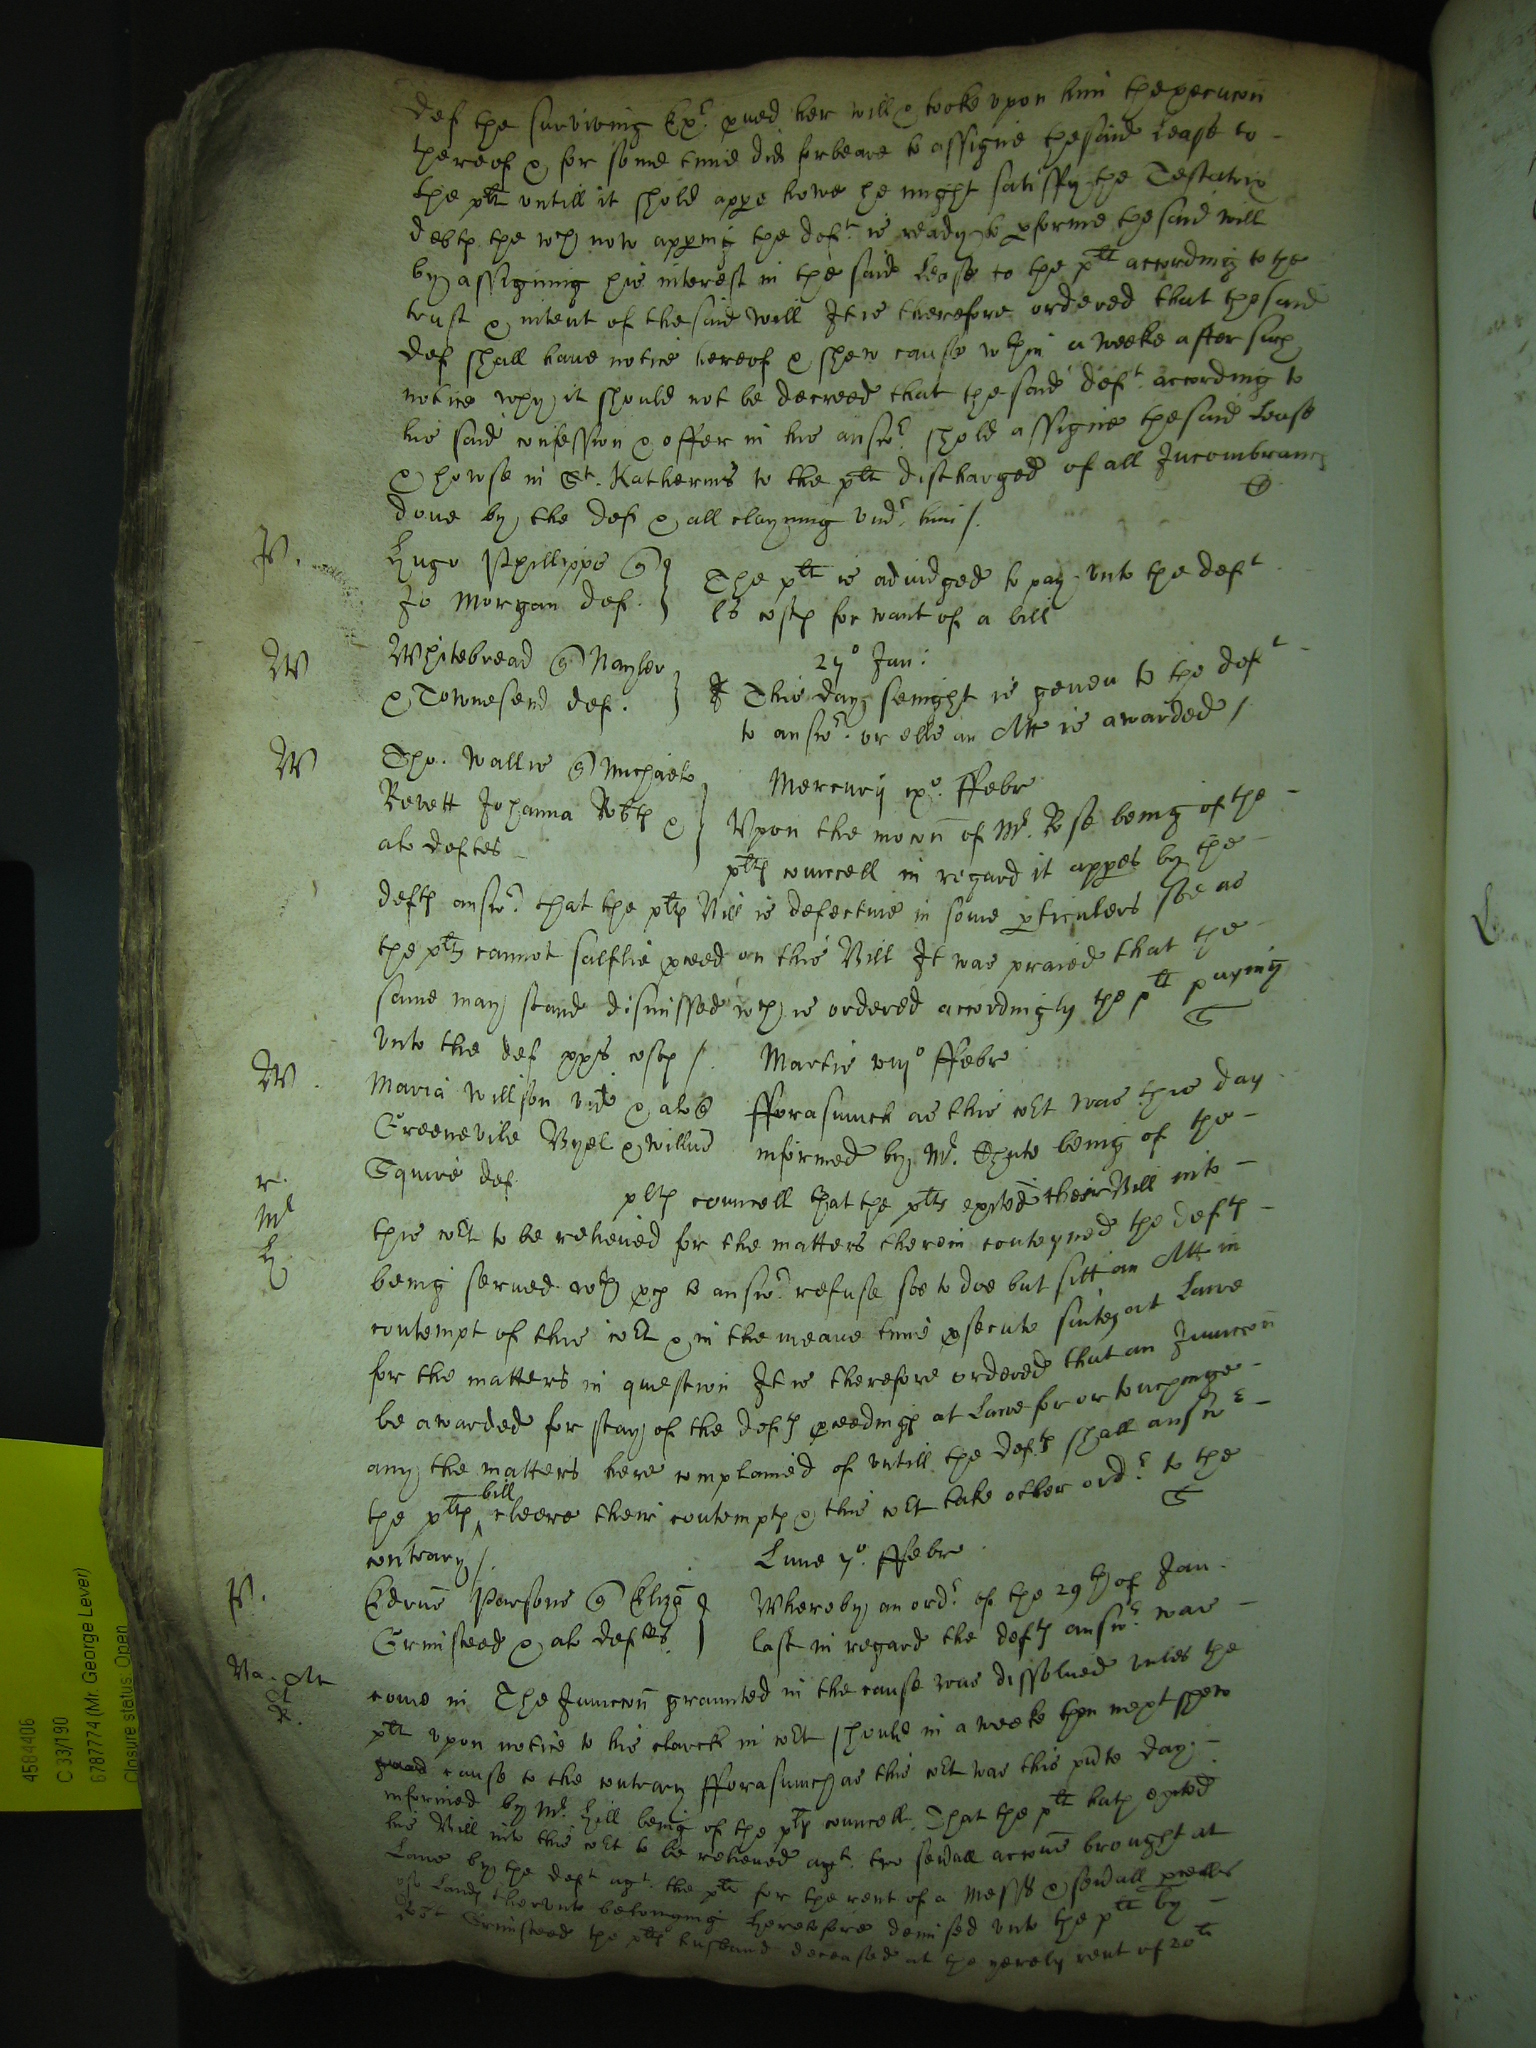 def the surviving Exr. pued her will & tooke vpon him thexecucon
thereof & for some time did forbeare to assigne the said Lease to
the plt untill it shold appe howe he might satisfy the Testatrix
debts the wch now apping the deft. is ready to pforme the said will
by assigning his interest in the said Lease to the plt according to the
trust & intent of the said will It is therefore ordered that the said
def shall have notice hereof & shew cause wthin a weeke after such
notice why it should not be decreed that the said deft. according to
his said confession & offer in his answr. shold assigne the said Lease
& howse in St. Katherins to the plt discharged of all Incombrances
done by the def & all clayming undr. him /.
P.
Hugo Phillipps
Jo Morgan def.
The plt is adiudged to pay unto the deft
ls costs for want of a bill
W
Whitebread Naylor
& Townesend def.
27o Jan:
This day senight is geven to the deft
to answr. or elles an Att is awarded /
W
Tho. Wallis Michaele
Revett Johanna Robts &
als deftes
Mercurij ixo. ffebr
Vpon the mocon of Mr. Rose being of the
plts councell in regard it appes by the
defts answr. that the plts Bill is defective in some pticulers soe as
the plts cannot saflie pceed on this Bill It was praied that the
same may stand dismissed wch is ordered accordingly the plt paying
unto the def xxs costs /.
W.
Martis viijo ffebr
Maria Willson vid & als
Greenevile Vyel & Willm
Squire def
r.
Mr
H
fforasmuch as this cort was this day
informed by Mr. Chute being of the
plts councell that the plts exited their Bill into
this cort to be relieved for the matters therein conteyned the defts
being served wth pces to answr. refuse soe to doe but sitt an Att in
contempt of this cort & in the meane time psecute suites at Lawe
for the matters in question It is therefore ordered that an Iniunccon
be awarded for stay of the defts pceedings at Lawe for or touchinge
any the matters here complained of untill the defts shall answr
the plts bill cleere their contempts & this cort take other ordr. to the
contrary /.
P.
Lune 7o. ffebr
Edrus Parsons Eliza
Grinsteed & als deftes.
Whereby an ordr. of the 29th of Jan
last in regard the defts answr. was
come in The Iniunccon graunted in the cause was dissolued unles the
plt vpon notice to his clarck in cort should in a weeke then next shew
cause to the contrary fforasmuch as this cort was this pnte day
informed by Mr. Hill being of the plts councell. That the plt hath exited
his Bill into this cort to be relieved agt. two seuall accons brought at
Lawe by the deft agt. the plt for the rent of a Mess & seuall pcells
of Lands thereunto belonging heretofore demised unto the plt by
Grinsteed the husband deceased at the yerely rent of 20li
4584406
C 33/190
6787774 (Mr. George Lever)
Closure status: Open